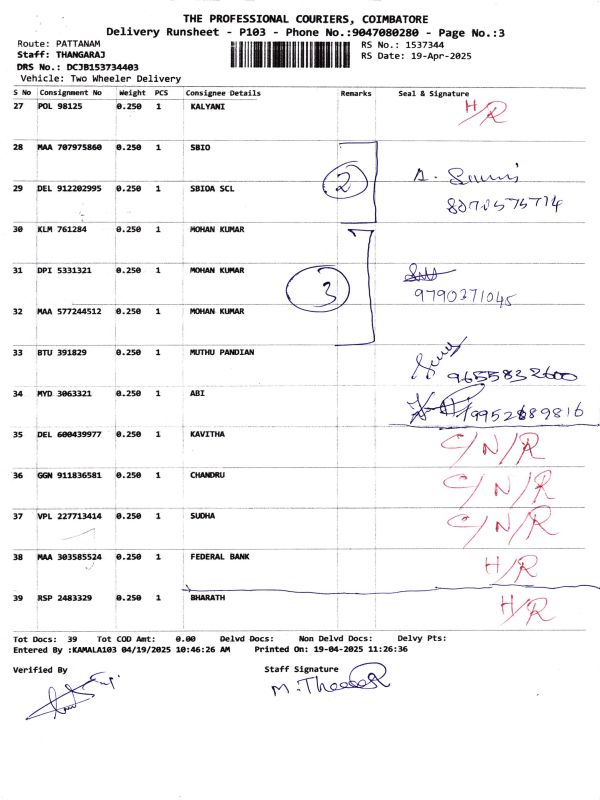 THE PROFESSIONAL COURIERS, COIMBATORE
Delivery Runsheet - P103 - Phone No.:9047080280 - Page No.:3
Route: PATTANAM RS No.: 1537344
Staff: THANGARAJ RS Date: 19-Apr-2025
DRS No.: DCJB153734403
Vehicle: Two Wheeler Delivery
S No Consignment No Weight PCS Consignee Details Remarks Seal & Signature
27 POL 98125 0.250 1 KALYANI H/R
28 MAA 707975860 0.250 1 SBIO
2
29 DEL 912202995 0.250 1 SBIOA SCL
30 KLM 761284 0.250 1 MOHAN KUMAR
31 DPI 5331321 0.250 1 MOHAN KUMAR
3 9790371045
32 MAA 577244512 0.250 1 MOHAN KUMAR
33 BTU 391829 0.250 1 MUTHU PANDIAN
9655832600
34 MYD 3063321 0.250 1 ABI
35 DEL 600439977 0.250 1 KAVITHA C/N/R
36 GGN 911836581 0.250 1 CHANDRU C/N/R
37 VPL 227713414 0.250 1 SUDHA C/N/R
38 MAA 303585524 0.250 1 FEDERAL BANK H/R
39 RSP 2483329 0.250 1 BHARATH H/R
Tot Docs: 39 Tot COD Amt: 0.00 Delvd Docs: Non Delvd Docs: Delvy Pts:
Entered By :KAMALA103 04/19/2025 10:46:26 AM Printed On: 19-04-2025 11:26:36
Verified By Staff Signature